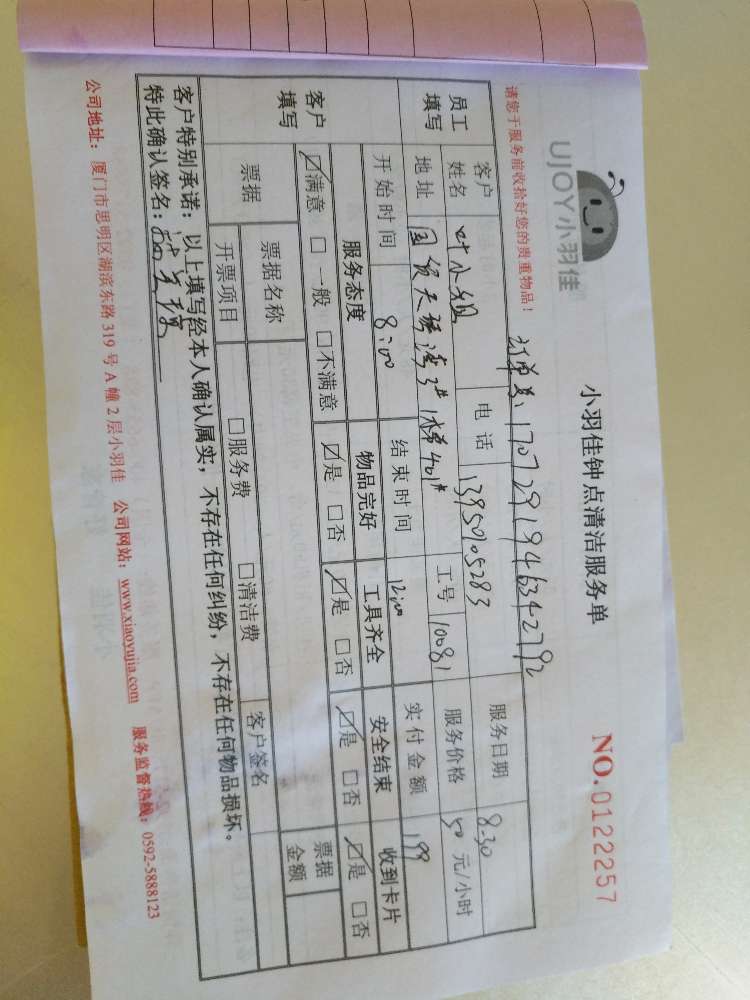 UJOY小羽佳
小羽佳钟点清洁服务单
NO.0122257
请您于服务前收拾好您的贵重物品！
订单号：1707291946342792
员工填写 客户姓名 叶小姐 电话 13950105283 服务日期 8.30
地址 国贸天琴湾3#1梯401# 工号 10081 服务价格 50 元/小时
开始时间 8:00 结束时间 12:00 实付金额 199
客户填写 服务态度 物品完好 工具齐全 安全结束 收到卡片
☑满意 □一般 □不满意 ☑是 □否 ☑是 □否 ☑是 □否 ☑是 □否
票据 票据名称 □服务费 □清洁费 票据金额
开票项目 客户签名
客户特别承诺：以上填写经本人确认属实，不存在任何纠纷，不存在任何物品损坏。
特此确认签名：
公司地址：厦门市思明区湖滨东路 319 号 A 幢 2 层小羽佳 公司网站：www.xiaoyujia.com 服务监督热线：0592-5888123